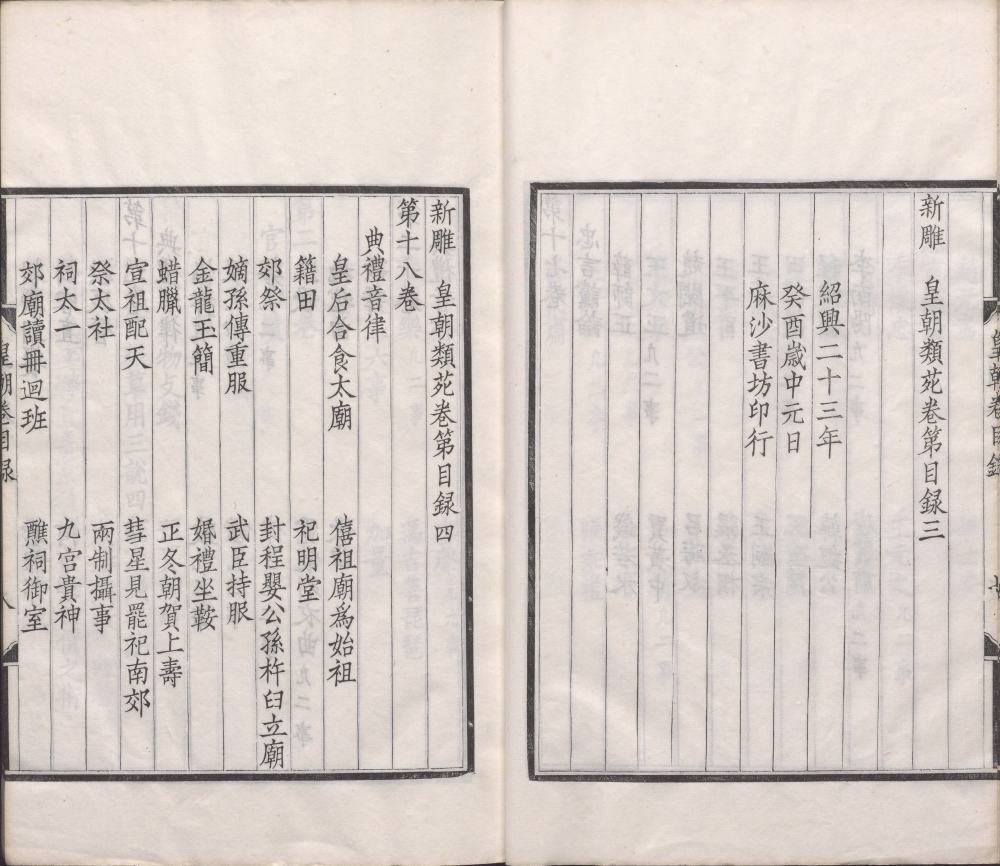 新雕　皇朝類苑卷第目録三
紹興二十三年
癸酉歳中元日
麻沙書坊印行
新雕　皇朝類苑卷第目録四
第十八卷
典禮音律
皇后合食太廟　僖祖廟爲始祖
籍田　祀明堂
郊祭　封程嬰公孫杵臼立廟
嫡孫傳重服　武臣持服
金龍玉簡　婚禮坐鞍
蜡臘　正冬朝賀上壽
宣祖配天　彗星見罷祀南郊
祭太社　兩制攝事
祠太一　九宮貴神
郊廟讀冊迴班　醮祠御室
皇朝卷目録　八